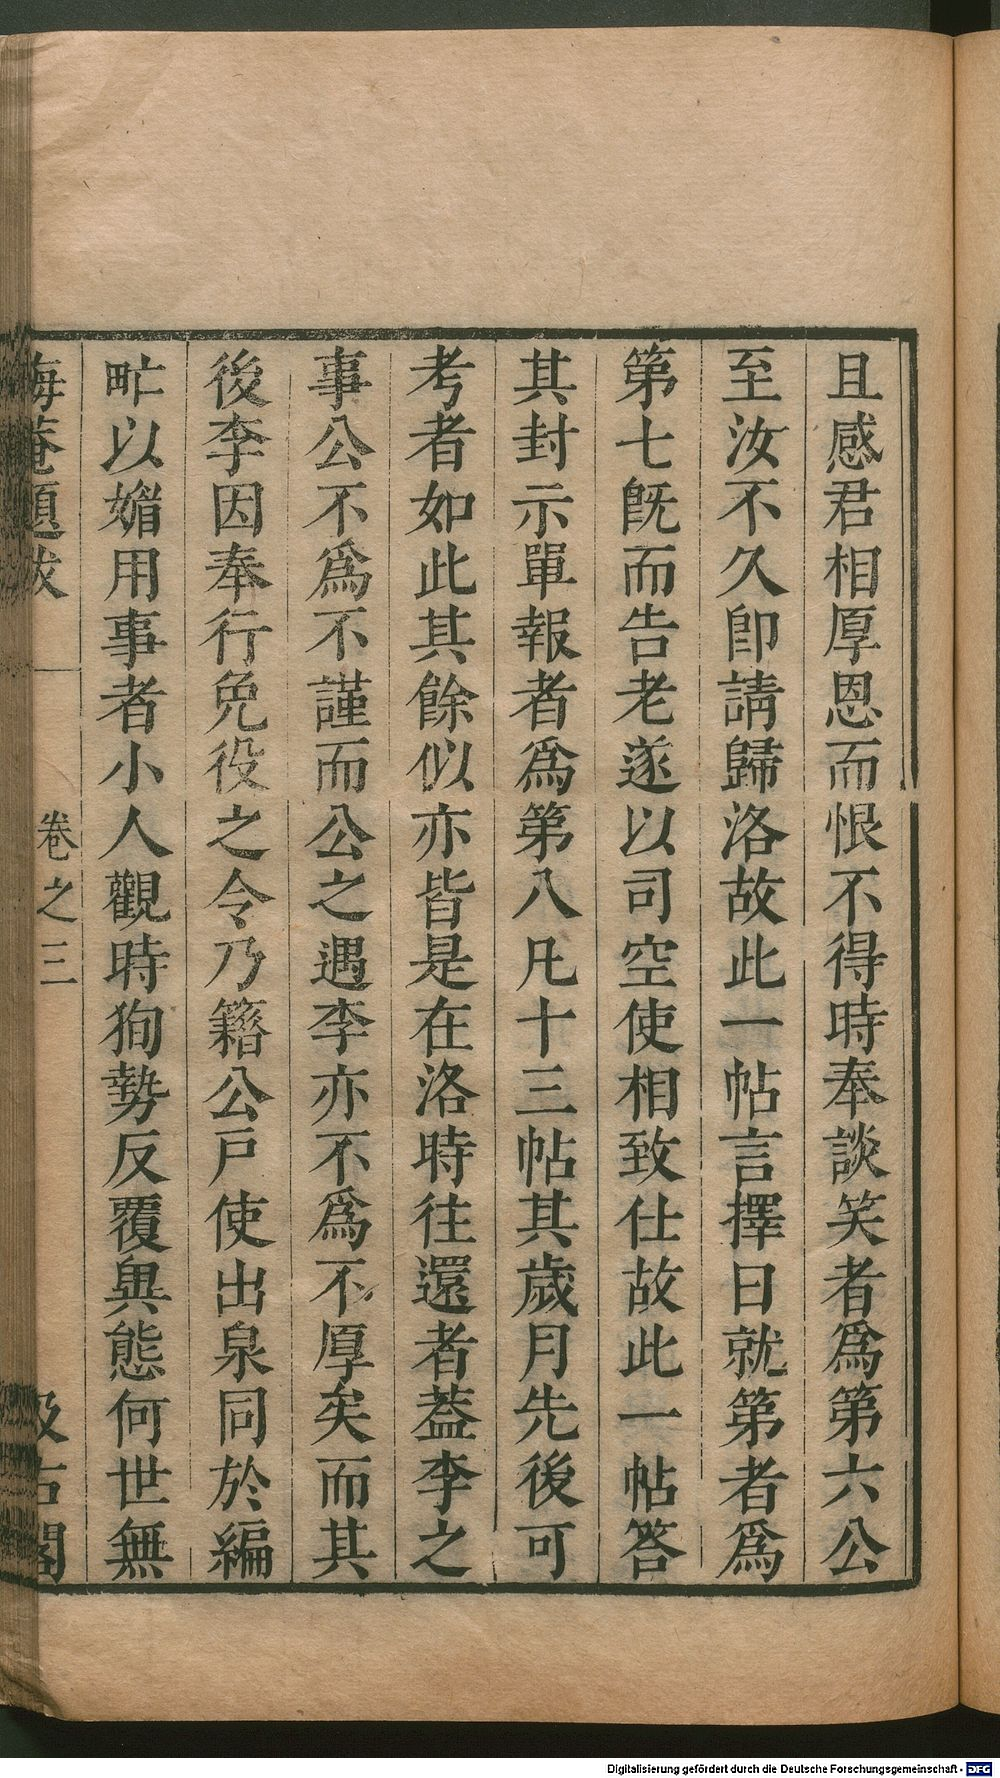 且感君相厚恩而恨不得時奉談笑者爲第六公
至汝不久卽請歸洛故此一帖言擇日就第者爲
第七旣而告老遂以司空使相致仕故此一帖答
其封示單報者爲第八凡十三帖其歲月先後可
考者如此其餘似亦皆是在洛時往還者葢李之
事公不爲不謹而公之遇李亦不爲不厚矣而其
後李因奉行免役之令乃籍公戸使出泉同於編
甿以媚用事者小人觀時狥勢反覆異態何世無
海菴題跋 卷之三 汲古閣
Digitalisierung gefördert durch die Deutsche Forschungsgemeinschaft - DFG